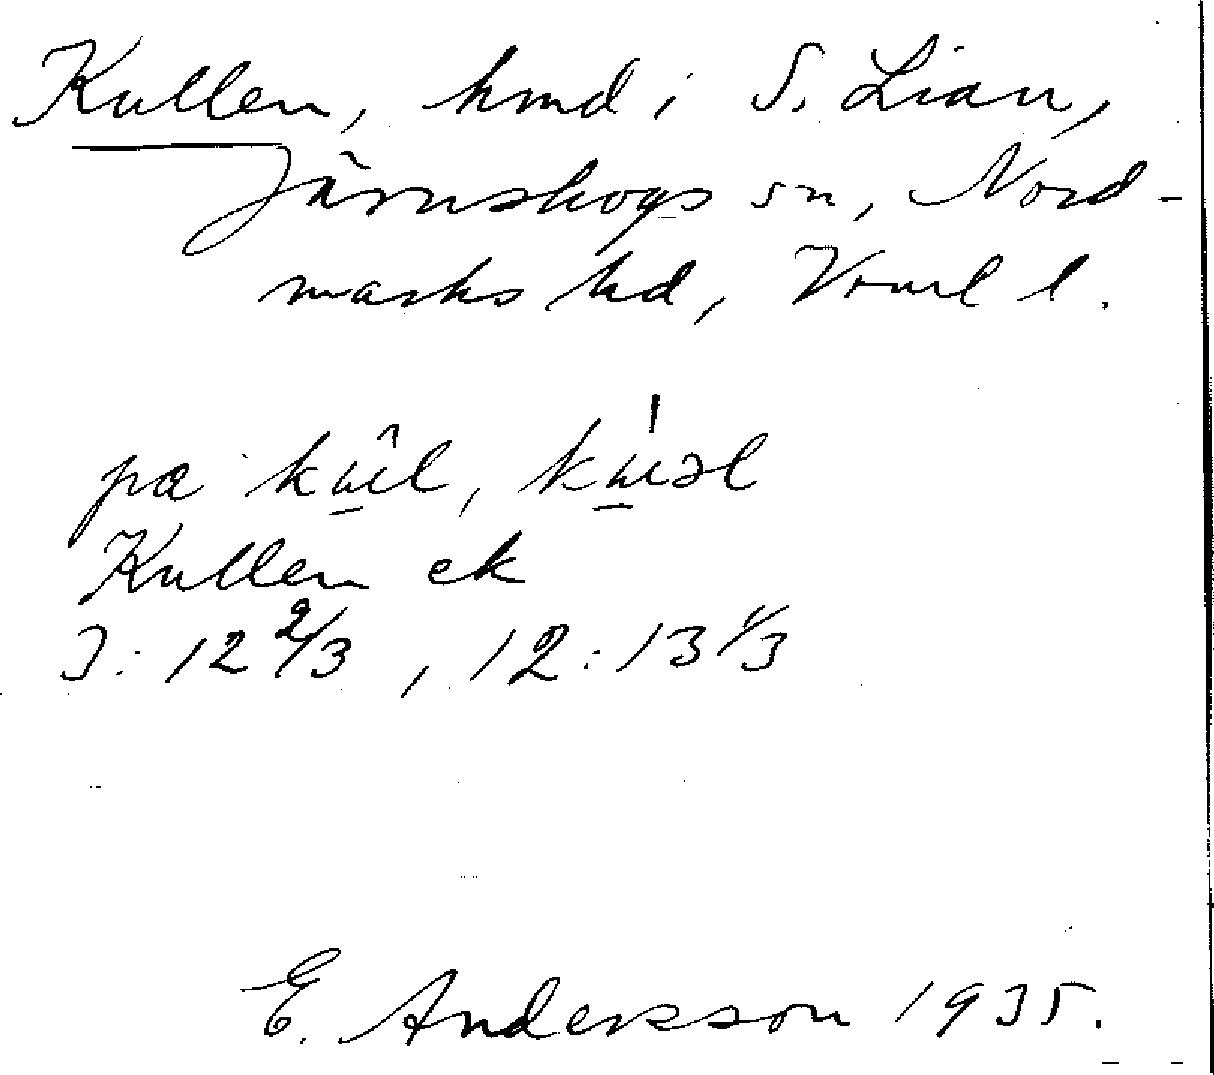 Kullen, hmd i S. Lian,
Järnskogs sn, Nord-
marks hd, Vrml l.
Kullen ek
3: 12 2/3, 12: 13 1/3
E. Andersson 1935.